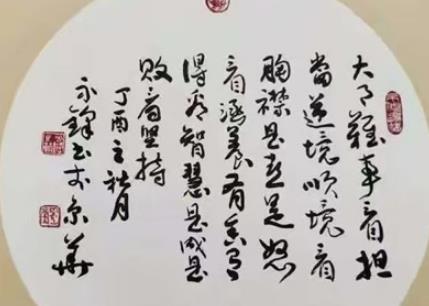 大事難事看担
當逆境順境看
胸襟是喜是怒
看涵養有舍有
得看智慧是成是
敗看坚持
丁酉之秋月
永鋒书於京華